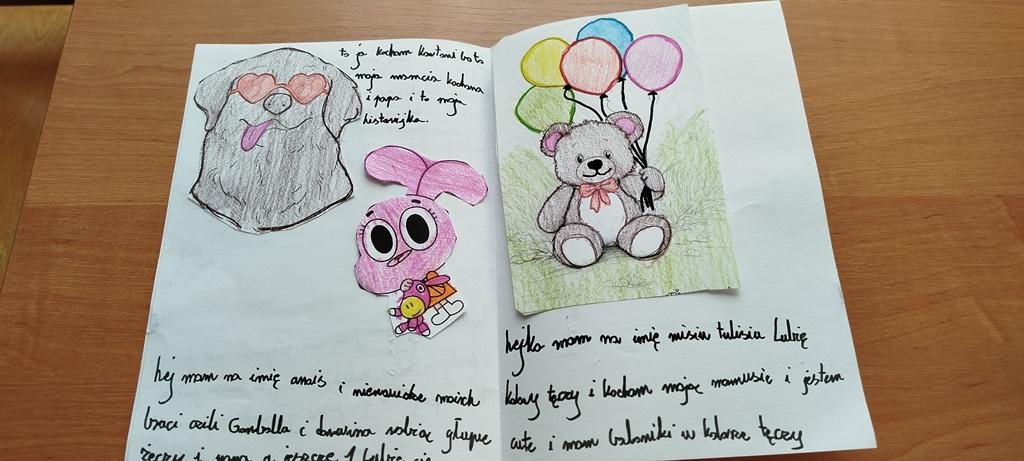 to ja kocham kastoni bo to
moja mamcia kochana
i papa i to moja
historyjka.
hej mam na imię anais i nienawidze moich
braci czili Gamballa i darwina robią głupie
rzeczy i
hejka mam na imię misiu tulisiu Lubię
kolory tęczy i kocham moją mamusię i jestem
cute i mam balaniki w kolorze tęczy